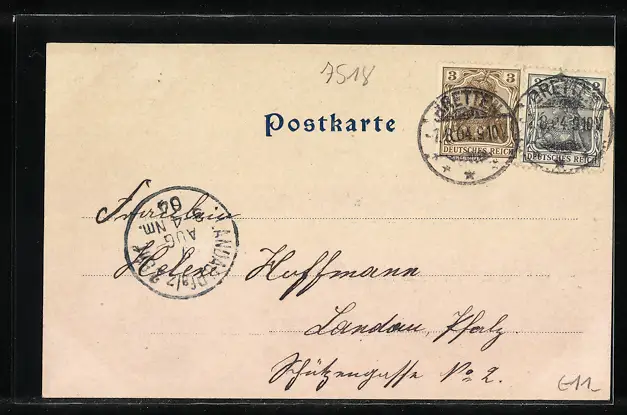 7518
3 3
DEUTSCHES REICH
2 2
DEUTSCHES REICH
BRETTEN
04.9-10V.
BRETTEN
8.04.9-10V.
Postkarte
LANDAU (Pfalz) BHF.
1 AUG
4 Nm.
04
Fräulein
Helen Hoffmann
Landau, Pfalz
Schützengasse No 2.